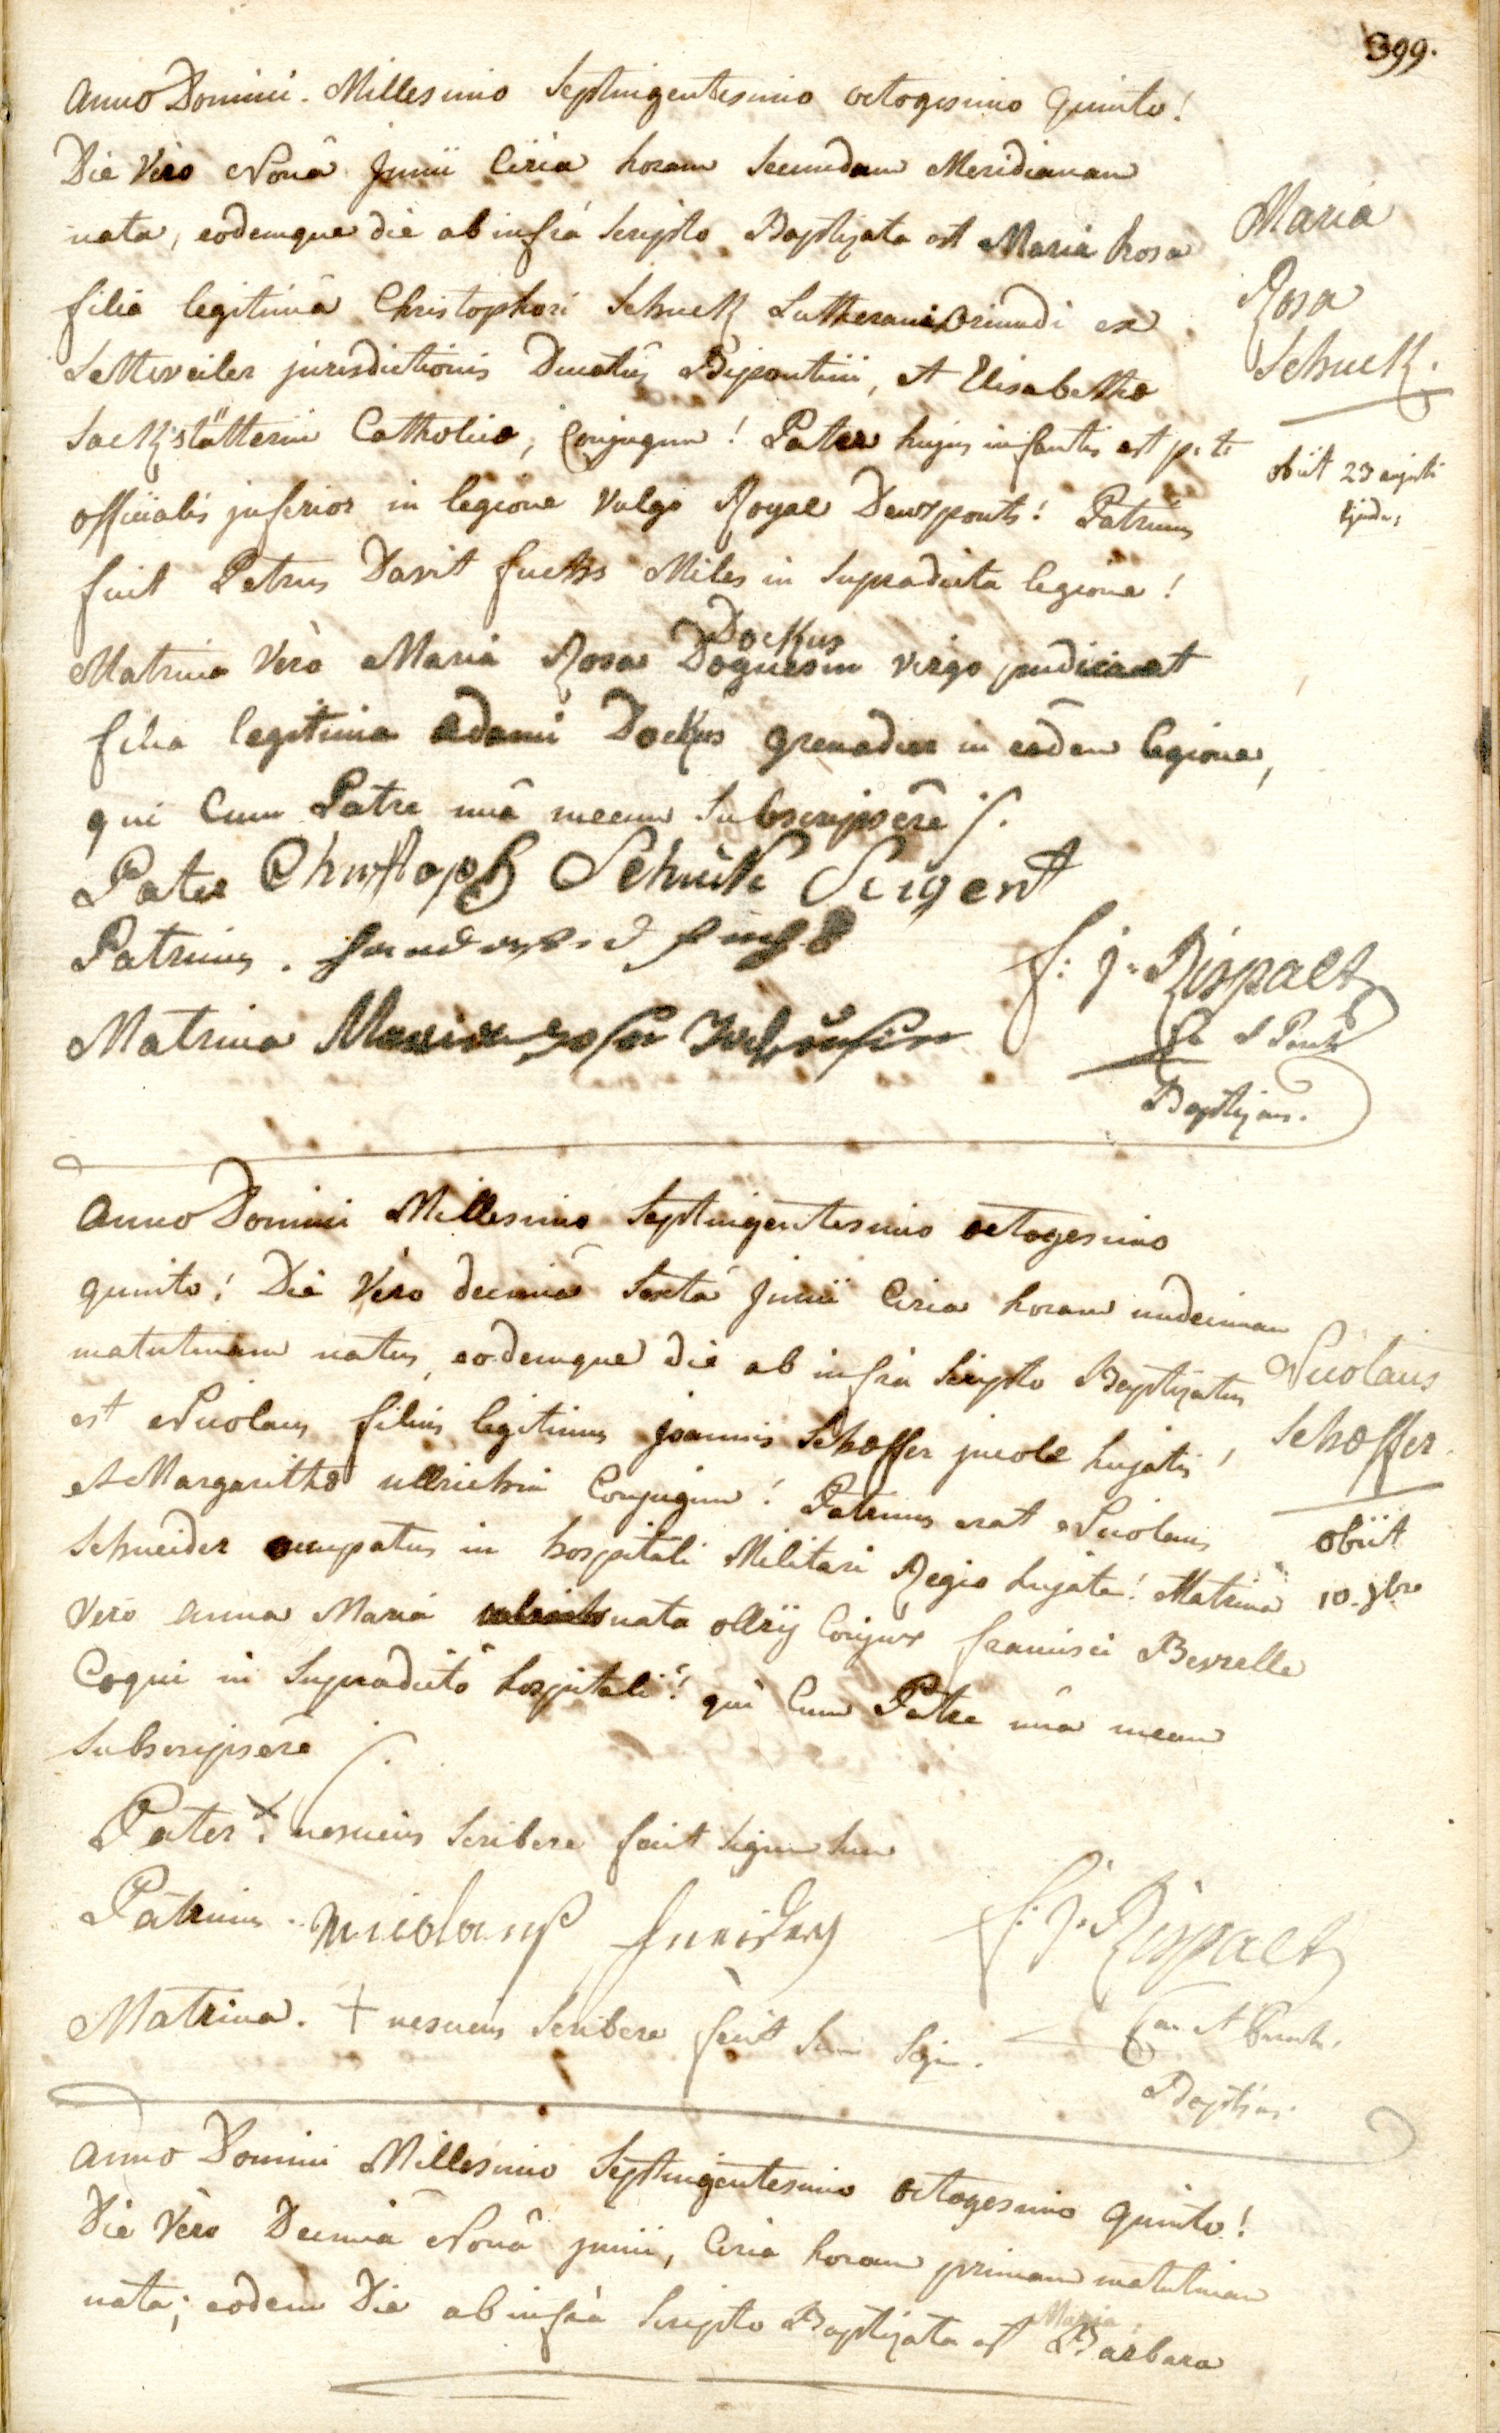 399.
Anno Domini. Millesimo Septingentesimo octogesimo Quinto!
Die Vero Nonâ Junii Circa horam secundam Meridianam
nata, eodemque die ab infrà scripto Baptizata est Maria Rosa
filia legitima Christophori Schuck Lutherani oriundi ex
Settweiler jurisdictionis Ducatûs Bipontini, et Elisabethæ
Sackstätterin Catholicæ, Conjugum! Pater hujus infantis est p. t.
officialis inferior in legione vulgo Royal Deuxponts! Patrinus
fuit Petrus Davit fuchs Miles in supradicta legione!
Dockus
Matrina Vero Maria Rosa Doguesin virgo pudica et
filia legitima Adami Dockus grenadier in eâdem legione,
qui Cum Patre unâ mecum Subscripsêre
Maria
Rosa
Schuck.
obiit 23 augusti
ejusdem
Pater Christoph Schuck Sergent
Patrinus.
Matrina Maria
f: j. Rispalt
Baptizans.
Anno Domini Millesimo Septingentesimo octogesimo
quinto! Die Vero decimâ Sextâ Junii Circa horam undecimam
matutinam natus, eodemque die ab infrà scripto Baptizatus
est Nicolaus filius legitimus Joannis Schæffer incolæ hujatis,
et Margarithæ ullrichin Conjugum! Patrinus erat Nicolaus
Schneider occupatus in hospitali Militari Regio hujate! Matrina
Vero Anna Maria nata ollry Conjux francisci Bexelle
Coqui in Supradicto hospitali! qui Cum Patre unâ mecum
Subscripsêre
Nicolaus
Schæffer.
obiit
10. 9bre
Pater + nesciens scribere fecit signum suum
Patrinus. Nicolaus
Matrina. + nesciens scribere fecit suum sign.
f. j. Rispalt
Baptizans.
Anno Domini Millesimo Septingentesimo octogesimo quinto!
Die Vero Decimâ Nonâ junii, Circa horam primam matutinam
Maria
nata; eodem Die ab infrà scripto Baptizata est Barbara